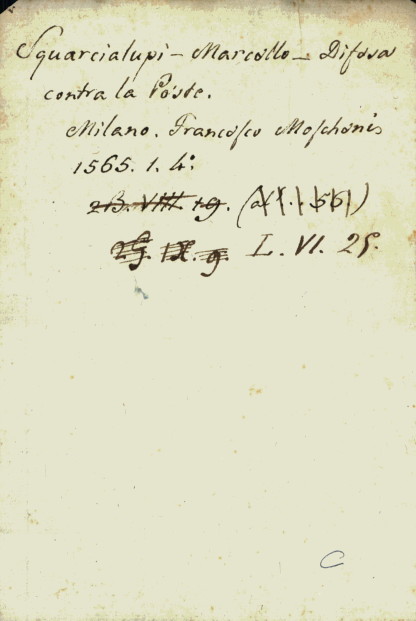 Squarcialupi - Marcello - Difesa
contra la Peste.
Milano. Francesco Moschenis
1565. 1. 4.º
2B. VIII 19.
IX. 9. L. VI. 25.
C